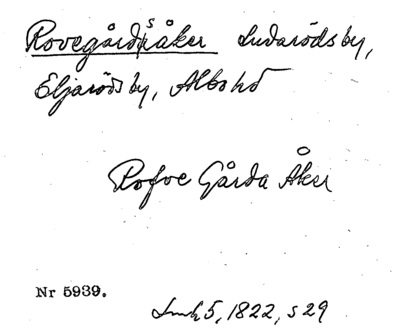 Rovegårdsåker Ludarödsby,
Eljarödsby, Albo hd
Rofve Gårda Åker
Nr 5939.
5, 1822, s 29